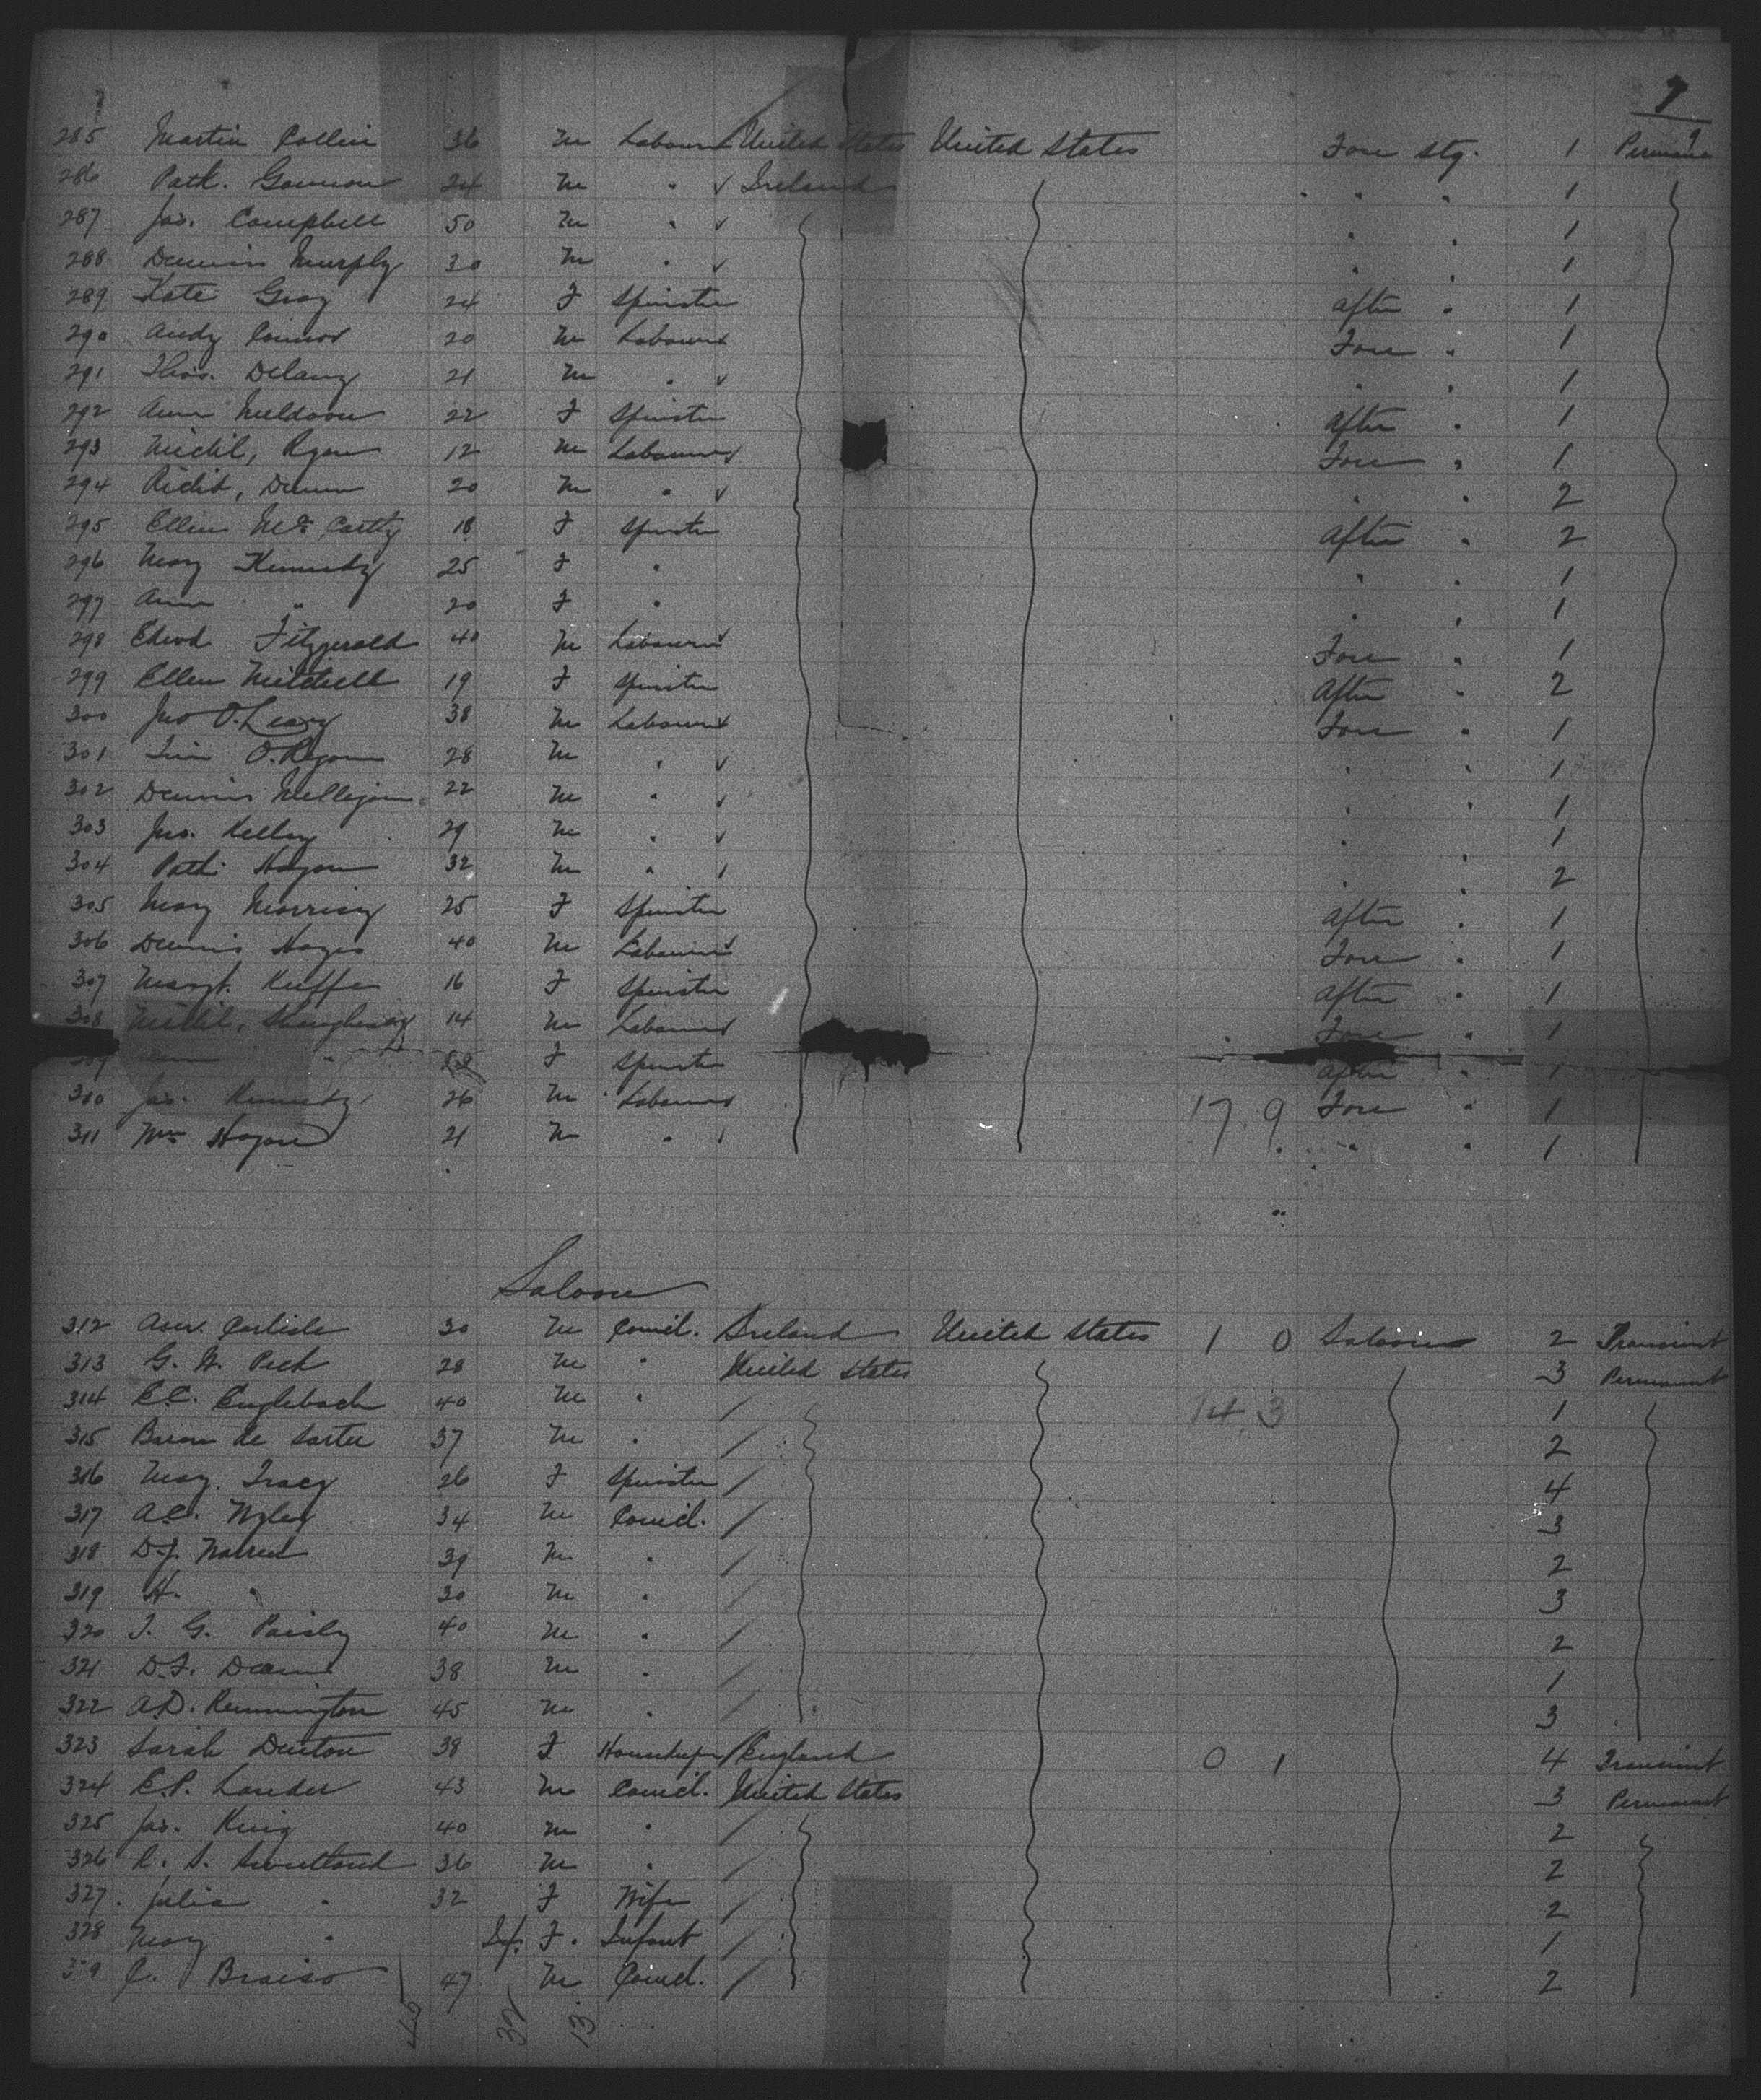 7
285 Martin Collin 36 M Labourer United States United States Fore Stg. 1 Permane
286 Patk. Gannon 24 M " Ireland " " 1
287 Jas. Campbell 50 M " " " 1
288 Dennis Murphy 30 M " " " 1
289 Kate Gray 24 F Spinster After " 1
290 Andy Connor 20 M Labourer Fore " 1
291 Thos. Delany 21 M " " " 1
292 Ann Muldoon 22 F Spinster After " 1
293 Michl, Ryan 12 M Labourer Fore " 1
294 Richd, Dunn 20 M " " " 2
295 Ellen McCarthy 18 F Spinster After " 2
296 Mary Kennedy 25 F " " " 1
297 Ann " 20 F " " " 1
298 Edwd Fitzgerald 40 M Labourer Fore " 1
299 Ellen Mitchell 19 F Spinster After " 2
300 Jno O.Leary 38 M Labourer Fore " 1
301 Tim O.Regan 28 M " " " 1
302 Dennis 22 M " " " 1
303 Jno. Kelley 29 M " " " 1
304 Patk. Hogan 32 M " " " 2
305 Mary Morrisy 25 F Spinster After " 1
306 Dennis Hayes 40 M Labourer Fore " 1
307 Margt. Keiffe 16 F Spinster After " 1
308 Michl, 14 M Labourer Fore " 1
309 " F Spinster After " 1
310 Jas. Kennedy 26 M Labourer 17 9 Fore " 1
311 Wm Hogan 21 M " " " 1
Saloon
312 Carlisle 30 M Comcl. Ireland United States 1 0 Saloon 2 Transient
313 G. W. Peck 28 M " United States 3 Permanent
314 C.C. Englebach 40 M " 14 3 1
315 Baron de Sarter 37 M " 2
316 May. Tracy 26 F Spinster 4
317 A.C. Wyley 34 M Comcl. 3
318 D.J. 39 M " 2
319 H. " 30 M " 3
320 T. G. Paisly 40 M " 2
321 D.F. 38 M " 1
322 A.D. Remmington 45 M " 3
323 Sarah Denton 38 F Housekeeper England 0 1 4 Transient
324 E.P. Lander 43 M Comcl. United States 3 Permanent
325 Jas. King 40 M " 2
326 R. S. Sweetland 36 M " 2
327 Julia " 32 F Wife 2
328 May " Inf. F. Infant 1
329 C. Braiso 47 M Comcl. 2
45 32 13